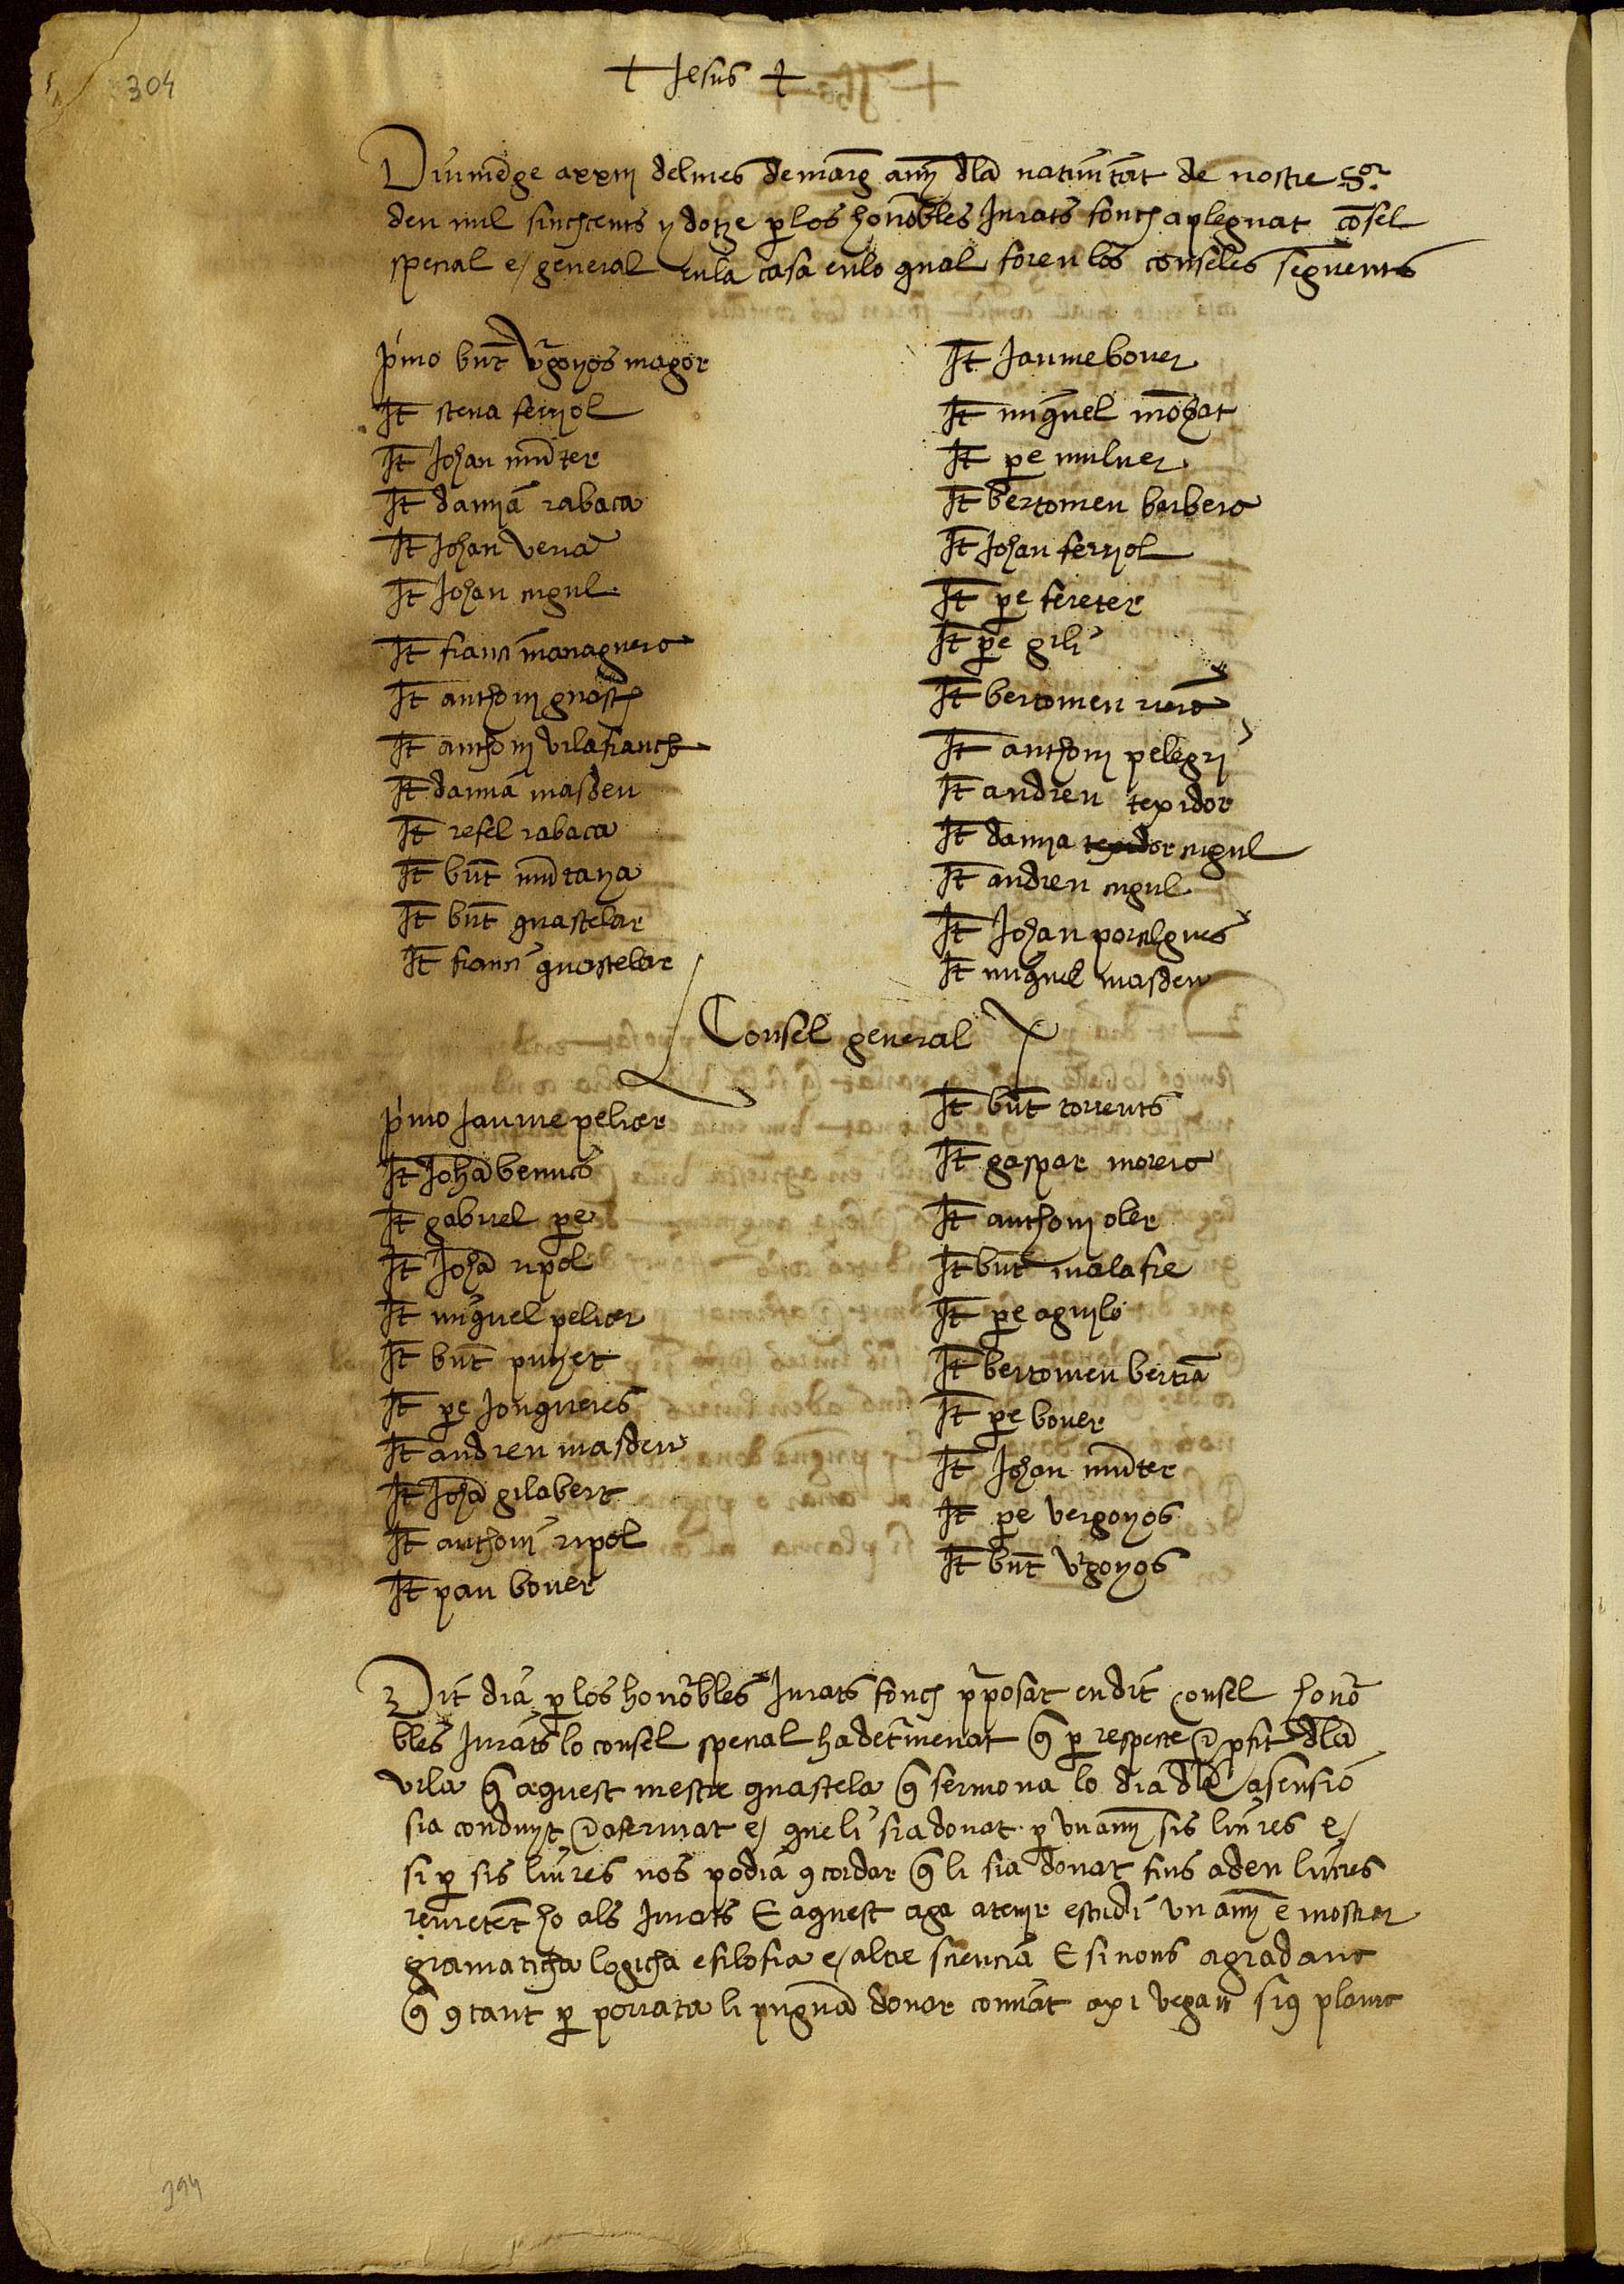 304
+ Jesus +
Diumēge a xxiij del mes de marḡ anȳ dla natiuitat de nostre Sor
deu mil sinchcents y dotze p los honōbles Jurats fonch aplegat cōsel
special e general en la casa en lo qual foren los conseles seguents
pimo bnt vgonyos magor
It steua ferriol
It Johan mūter
It damiā rabaca
It Johan vena
It Johan cugul
It franci managuero
It anthoni guasch
It anthoni vilafranch
It damiā masdeu
It refel rabaca
It bnt mūtanya
It bnt guastelar
It franci guastelar
It Jaume bouer
It miguel mōgat
It pe mulner
It bertomeu barbero
It Johan ferriol
It pe fereter
It pe gili
It bertomeu riero
It anthoni pelegri
It andreu texidor
It damia texidor cugul
It andreu cugul
It Johan portelgues
It miguel masdeu
Consel general
pimo Jaume pelicer
It Johā benures
It gabriel pe
It Johā ripol
It miguel pelicer
It bnt punyet
It pe Jonqueres
It andreu masdeu
It Johā gilabert
It anthoni ripol
It pau bouer
It bnt torrents
It gaspar morero
It anthoni oler
It bnt malafre
It pe aguylo
It bertomeu bertrā
It pe bouer
It Johan mūter
It pe vergonyos
It bnt vgonyos
Dit dia p los honōbles Jurats fonch pposat en dit consel honō
bles Jurats lo consel special ha detminat q̄ p respecte & pfit dla
vila q̄ aquest mestre guastela q̄ sermona lo dia dla asensio
sia conduyt & afermat e que li sia donat p vn anȳ sis liures e
si p sis liures nos podia 9cordar q̄ li sia donat fins a deu liures
remetēt ho als Jurats E aquest aga a tenir estudi vn anȳ e mostrar
gramaticha logicha e filofia e altre sciencia E si nons agradaue
q̄ 9tant p porrata li pugā donar comiat axi vegan si 9 plaura
394